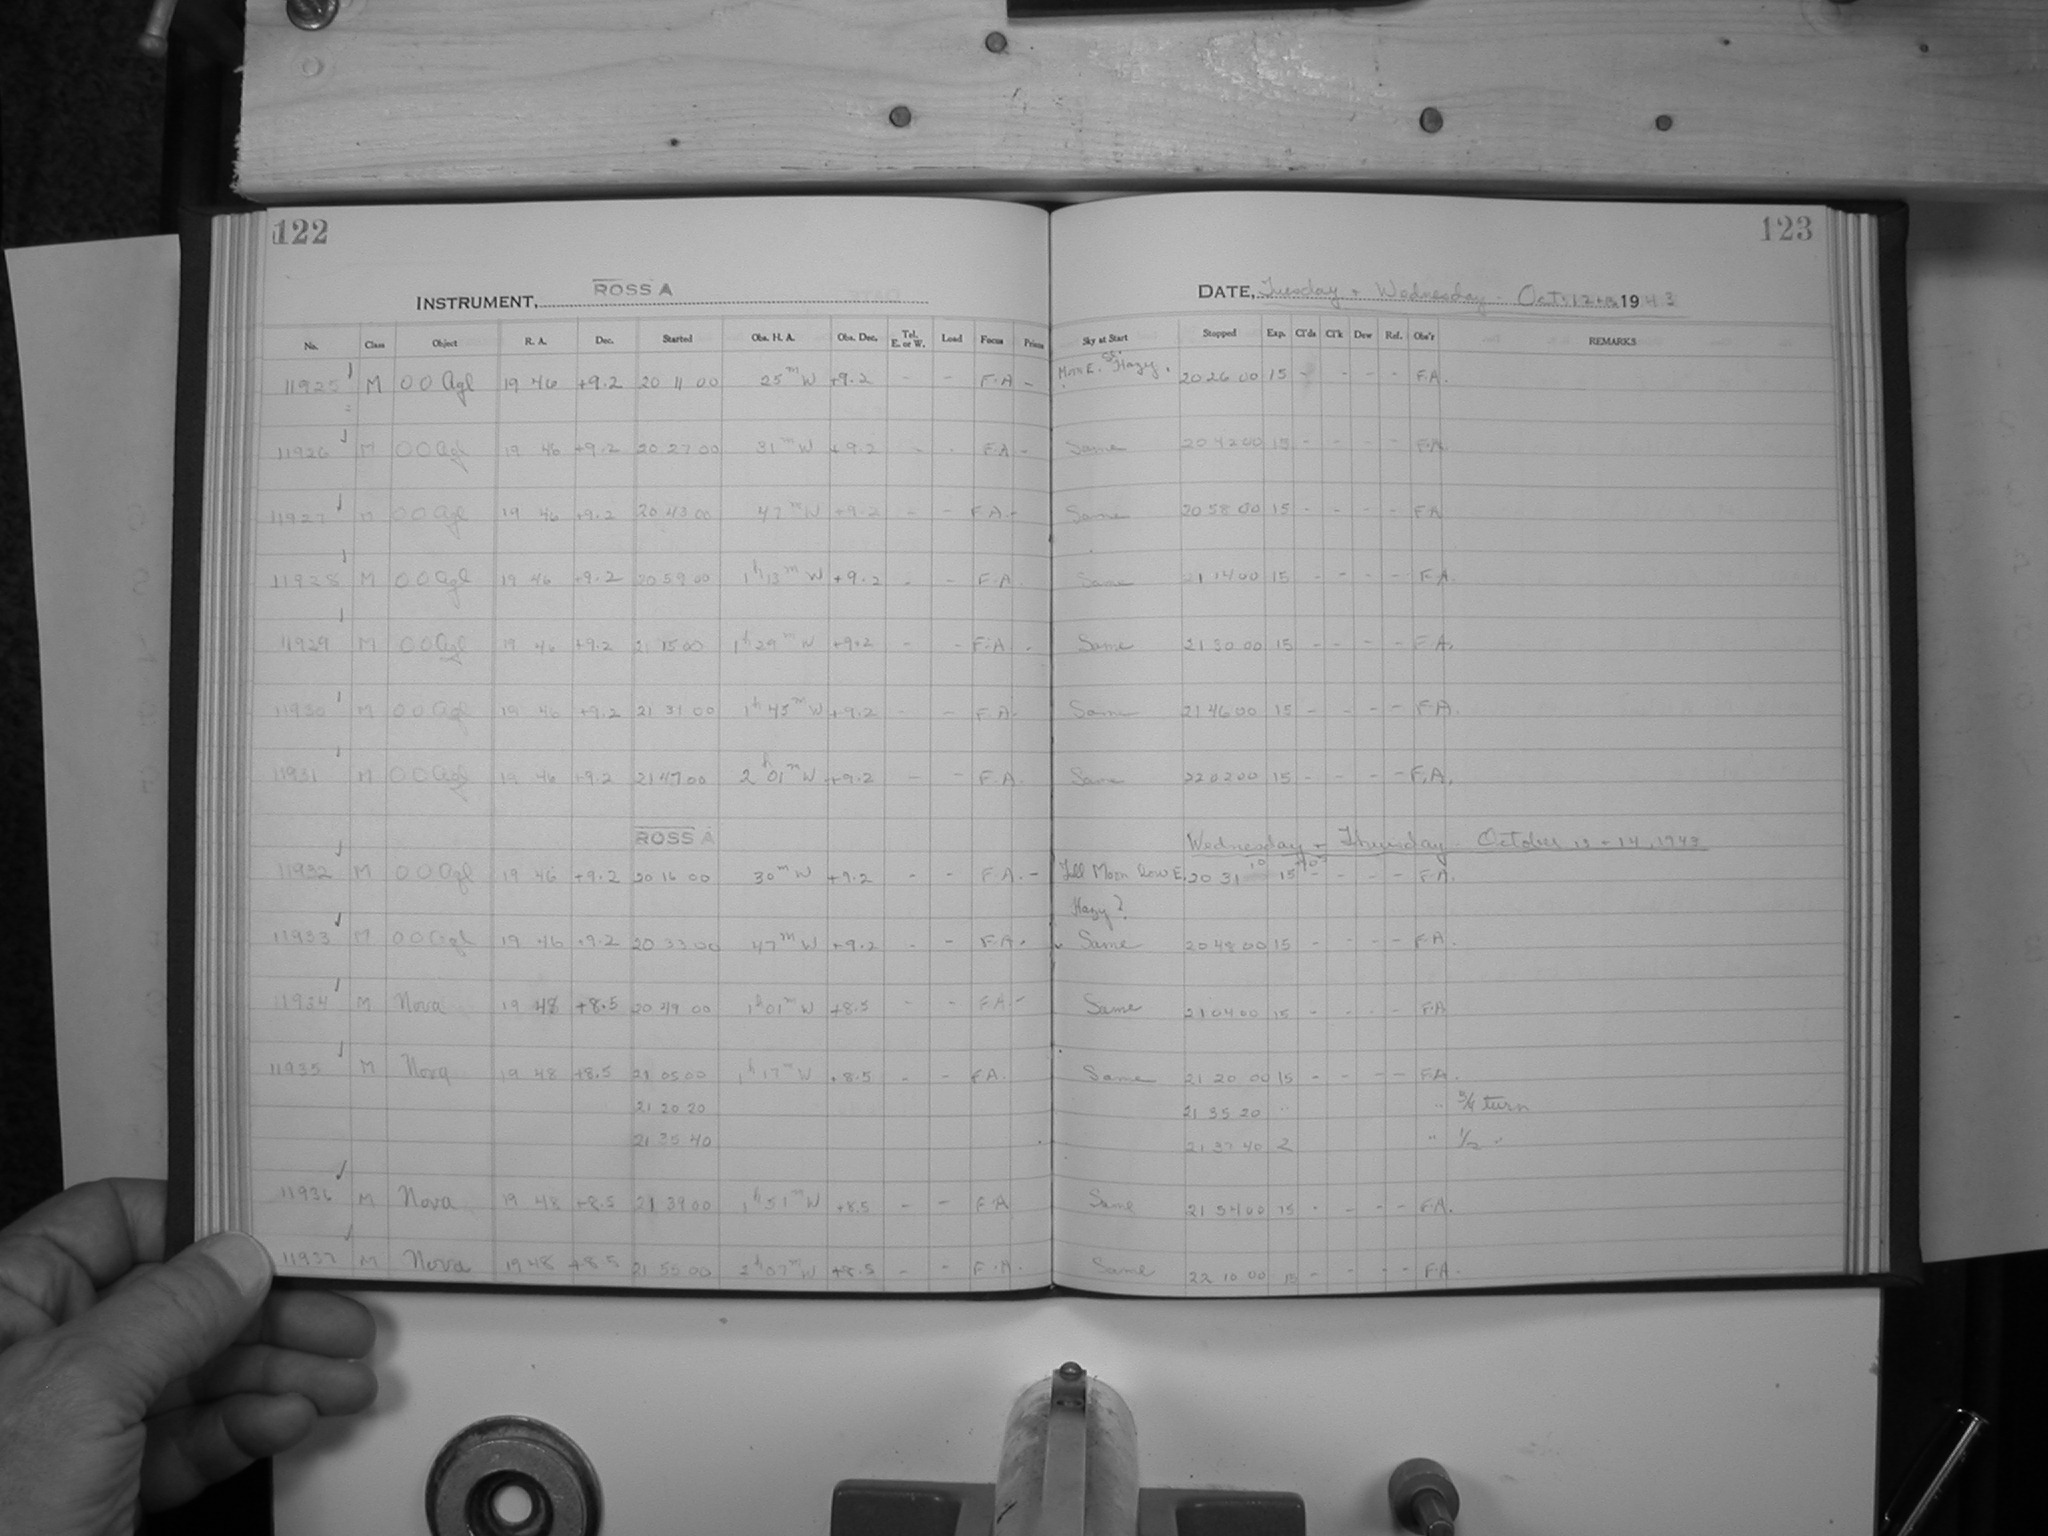 122
123
INSTRUMENT, ROSS A
DATE, Tuesday + Wednesday. Oct. 12 + 13 1943
No. Class Object R. A. Dec. Started Obs. H. A. Obs. Dec. Tel. E. or W. Load Focus Prism Sky at Start Stopped Exp. Cl'ds Cl'k Dew Ref. Obs'r REMARKS
11925 M OO Aql 19 46 +9.2 20 11 00 25m W +9.2 - - F.A - Moon E. Sl. Hazy. 20 26 00 15 - - - - F.A.
11926 M OO Aql 19 46 +9.2 20 27 00 31m W +9.2 - - F.A - Same 20 42 00 15 - - - - F.A.
11927 M OO Aql 19 46 +9.2 20 43 00 47m W +9.2 - - F.A - Same 20 58 00 15 - - - - F.A
11928 M OO Aql 19 46 +9.2 20 59 00 1h 13m W +9.2 - - F.A. Same 21 14 00 15 - - - - F.A.
11929 M OO Aql 19 46 +9.2 21 15 00 1h 29m W +9.2 - - F.A - Same 21 30 00 15 - - - - F.A.
11930 M OO Aql 19 46 +9.2 21 31 00 1h 45m W +9.2 - - F.A. Same 21 46 00 15 - - - - F.A.
11931 M OO Aql 19 46 +9.2 21 47 00 2h 01m W +9.2 - - F.A. Same 22 02 00 15 - - - - F.A.
ROSS A Wednesday + Thursday. October 13 + 14, 1943
11932 M OO Aql 19 46 +9.2 20 16 00 30m W +9.2 - - F.A. - Full Moon Low E. 20 31 10 15 10 - - - - F.A.
Hazy?
11933 M OO Aql 19 46 +9.2 20 33 00 47m W +9.2 - - F.A. Same 20 48 00 15 - - - - F.A.
11934 M Nova 19 48 +8.5 20 49 00 1h 01m W +8.5 - - F.A. - Same 21 04 00 15 - - - - F.A
11935 M Nova 19 48 +8.5 21 05 00 1h 17m W +8.5 - - F.A. Same 21 20 00 15 - - - - F.A.
21 20 20 21 35 20 " " 3/4 turn
21 35 40 21 37 40 2 " 1/2 "
11936 M Nova 19 48 +8.5 21 39 00 1h 51m W +8.5 - - F.A Same 21 54 00 15 - - - - F.A.
11937 M Nova 19 48 +8.5 21 55 00 2h 07m W +8.5 - - F.A. Same 22 10 00 15 - - - - F.A.